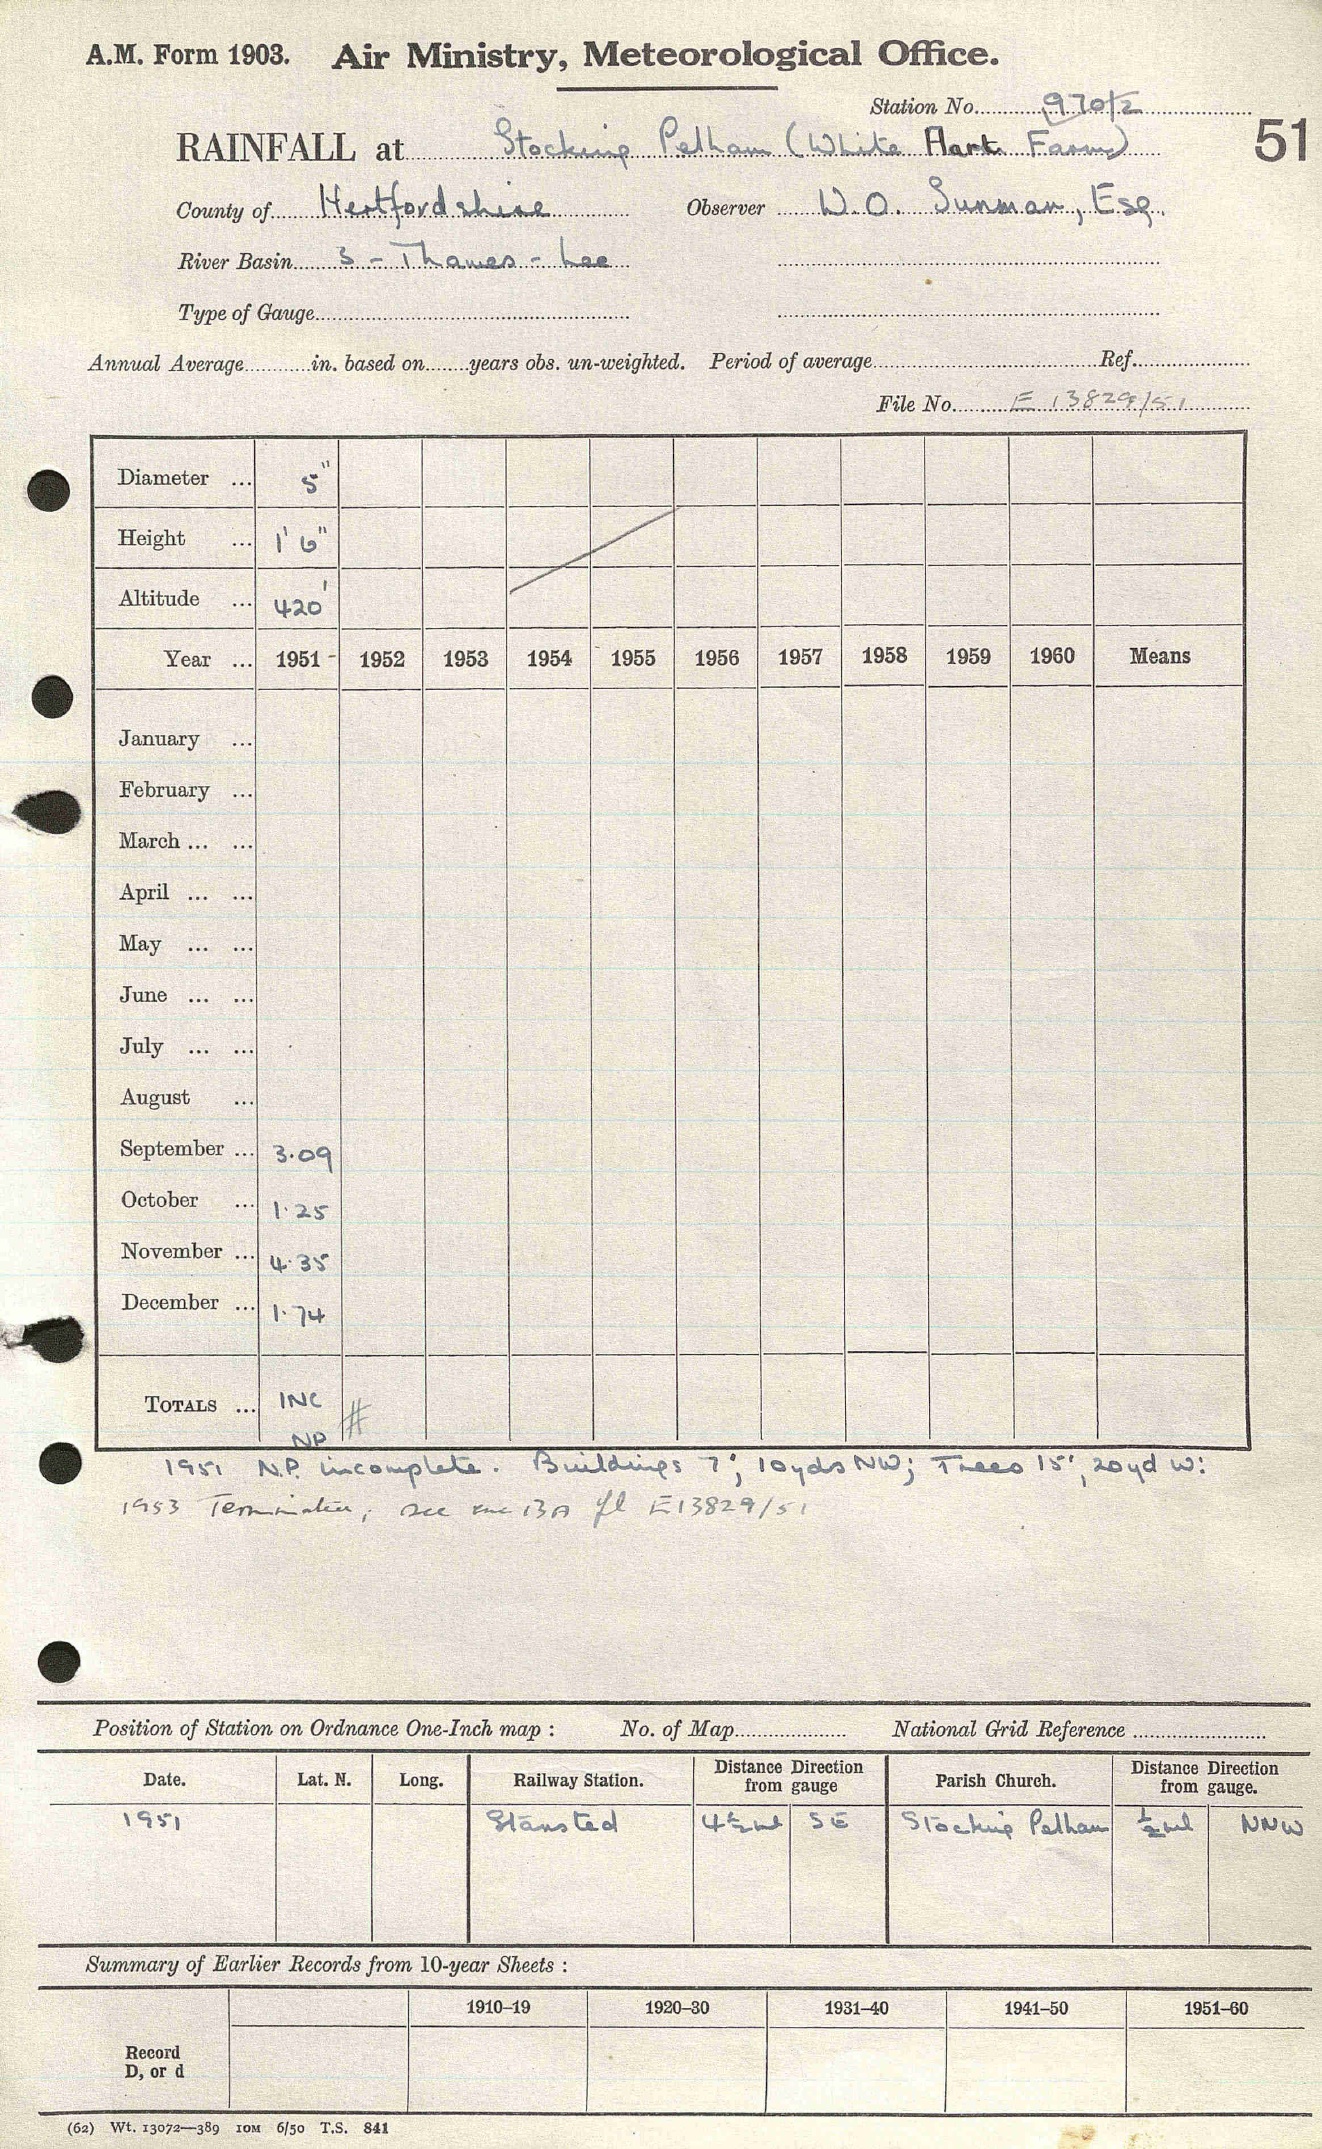 A.M. Form 1903. Air Ministry, Meteorological Office.
Station No. 970/2
51
RAINFALL at Stocking Pelham (White Hart Farm)
County of Hertfordshire Observer W.O. Sunman, Esq.
River Basin 3 - Thames - Lee
Type of Gauge
Annual Average in. based on years obs. un-weighted. Period of average Ref.
File No. E 13829/51
Diameter ... 5"
Height ... 1' 6"
Altitude ... 420'
Year ... 1951 - 1952 1953 1954 1955 1956 1957 1958 1959 1960 Means
January ...
February ...
March ... ...
April ... ...
May ... ...
June ... ...
July ... ...
August ...
September ... 3.09
October ... 1.25
November ... 4.35
December ... 1.74
TOTALS ... INC #
NP
1951 N.P. incomplete. Buildings 7', 10yds NW; Trees 15', 20yd W:
1953 Terminated; see 13A fl E13829/51
Position of Station on Ordnance One-Inch map : No. of Map National Grid Reference
Date. Lat. N. Long. Railway Station. Distance Direction from gauge Parish Church. Distance Direction from gauge.
1951 Stansted 4½ml SE Stocking Pelham ½ml NNW
Summary of Earlier Records from 10-year Sheets :
1910–19 1920–30 1931–40 1941–50 1951–60
Record
D, or d
(62) Wt. 13072—389 10M 6/50 T.S. 841